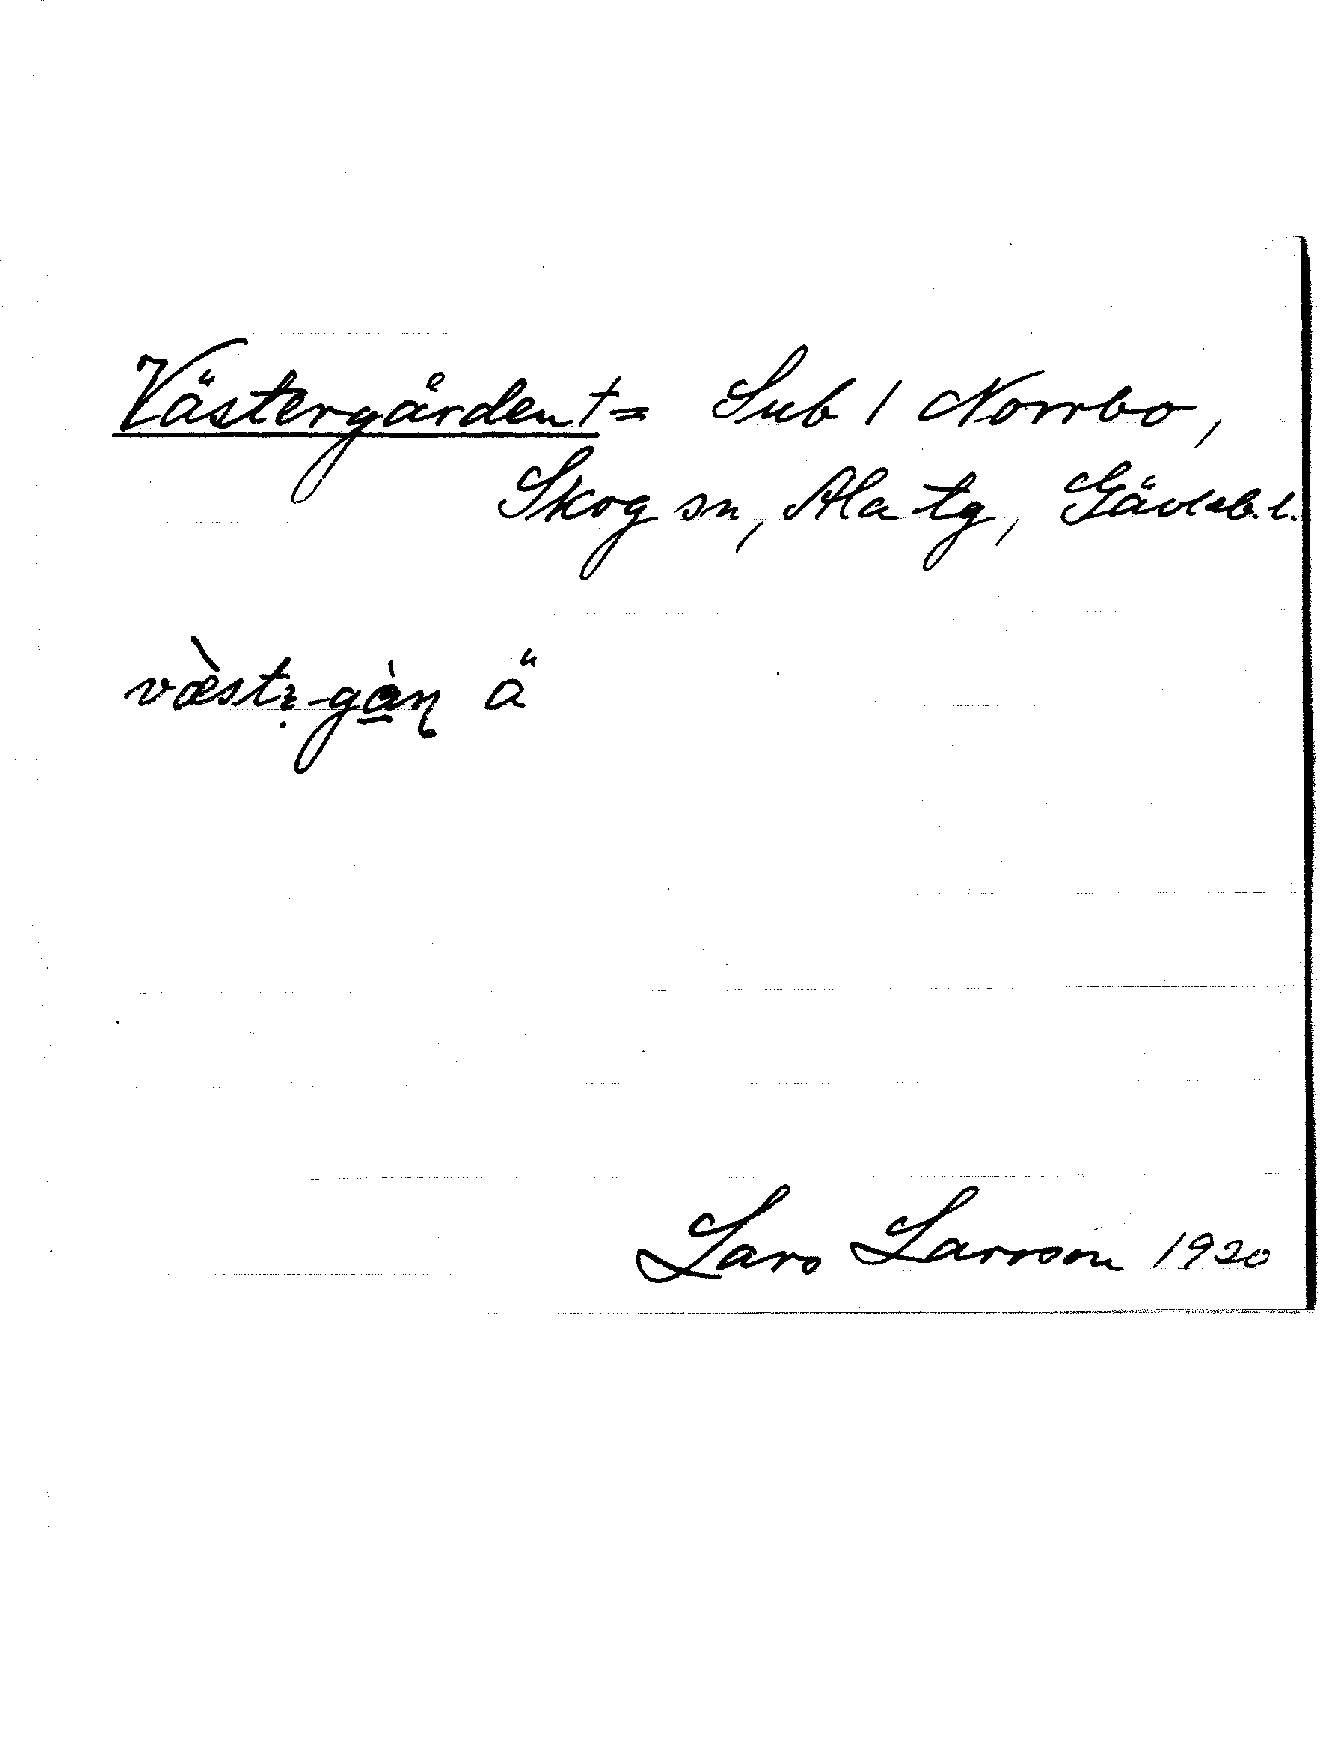 Västergården † = Sub 1 Norrbo,
Skog sn, Ala tg, Gävleb. l.
ä
Lars Larsson 1920